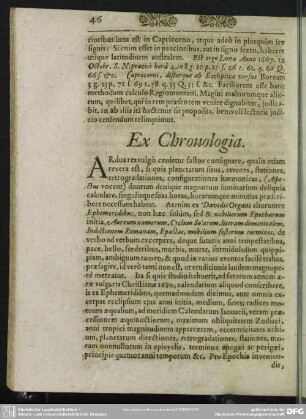 46
rioribus luna est in Capricorno, atque adeò in pluquám sex
signis: Si enim esset in paucioribus, aut in signo sexto, haberet
utique latitudinem australem. Est ergo Luna Anno 1667. 12
Octobr. S. N.
Capricorni, distatque ab Ecliptica versus Boream
Faciliorem esse hanc
methodum calculo Regiomontani, Magini multorumque alio-
rum, quilibet, qui in rem præsentem venire dignabitur, judica-
bit, an ab aliis ita hactenus sit proposita, benevoli lectoris judi-
cio censendum relinquimus.
Ex Chronologia.
ARdua res vulgò censetur fastos consignare, qualis etiam
revera est, si quis planetarum situs, cursus, stationes,
retrogradationes, configurationes harmonicas, (Aspe-
ctus vocant) duorum denique magnorum luminarium deliquia
calculare, singulisque suas horas, horarumque minutias præscri-
bere necessum habeat. Attamen è Davidis Origani aliorumve
Ephemeridibus, non hæc solùm, sed & nobiliorum Epocharum
initia, Aureum numerum, Cyclum Solarem, literam dominicalem,
Indictionem Romanam, Epactas, mobilium festorum terminos, de
verbo ad verbum excerpere, deque futuris anni tempestatibus,
pace, bello, fœderibus, morbis, morte, formidolosum quippi-
piam, ambiguum tamen, & quod in varios eventus facilè trahas,
præfagire, id verò tanti non est, ut eruditionis laudem magnopè-
re mereatur. Ita si quis studiosus hoc erit, ad futurum annum
æræ vulgaris Christianæ 1680. calendarium aliquod conscribere,
is ex Ephemeridibus, quemadmodum diximus, ante omnia ex-
cerpat ecclipsium ejus anni initia, medium, finem; radices mo-
tuum æqualium, ad meridiem Calendarum Januarii, veram præ-
cessionem æquinoctiorum, maximam obliquitatem Zodiaci,
anni tropici magnitudinem apparentem, eccentricitates orbi-
um, planetarum directiones, retrogradationes, stationes, mo-
ram nonnullorum in epicyclis, terminos apogæi ac perigæi,
principia quatuor anni temporum &c. Pro Epochis invenien-
dis,